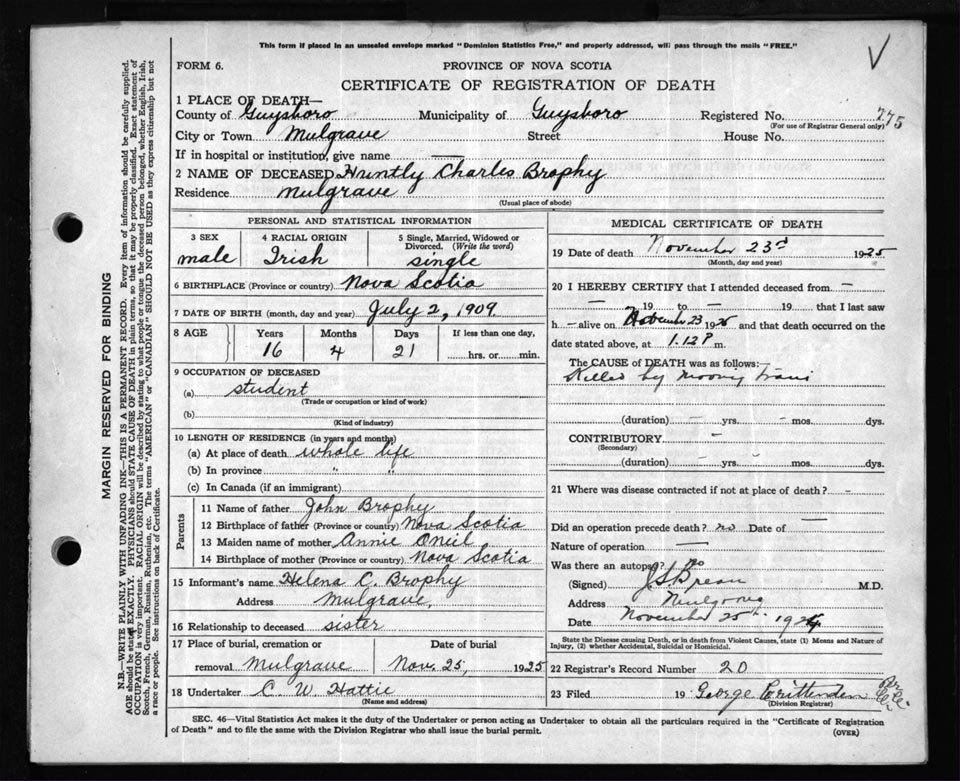 This form if placed in an unsealed envelope marked "Dominion Statistics Free," and properly addressed, will pass through the mails "FREE."
FORM 6.
PROVINCE OF NOVA SCOTIA
CERTIFICATE OF REGISTRATION OF DEATH
1 PLACE OF DEATH—
County of Guysboro Municipality of Guysboro Registered No. 275
(For use of Registrar General only)
City or Town Mulgrave Street House No.
If in hospital or institution, give name —
2 NAME OF DECEASED Huntly Charles Brophy
Residence Mulgrave
(Usual place of abode)
PERSONAL AND STATISTICAL INFORMATION
3 SEX 4 RACIAL ORIGIN 5 Single, Married, Widowed or Divorced. (Write the word)
male Irish single
6 BIRTHPLACE (Province or country) Nova Scotia
7 DATE OF BIRTH (month, day and year) July 2, 1909
8 AGE Years Months Days If less than one day,
16 4 21 hrs. or min.
9 OCCUPATION OF DECEASED
(a) student
(Trade or occupation or kind of work)
(b)
(Kind of industry)
10 LENGTH OF RESIDENCE (in years and months)
(a) At place of death whole life
(b) In province " "
(c) In Canada (if an immigrant)
Parents
11 Name of father John Brophy
12 Birthplace of father (Province or country) Nova Scotia
13 Maiden name of mother Annie Oneil
14 Birthplace of mother (Province or country) Nova Scotia
15 Informant's name Helena C. Brophy
Address Mulgrave,
16 Relationship to deceased sister
17 Place of burial, cremation or Date of burial
removal Mulgrave Nov. 25, 1925
18 Undertaker C. W Hattie
(Name and address)
MEDICAL CERTIFICATE OF DEATH
19 Date of death November 23rd 1925
(Month, day and year)
20 I HEREBY CERTIFY that I attended deceased from —
— 19 to — 19 that I last saw
h — alive on November 23 1925 and that death occurred on the
date stated above, at 1.12 P m.
The CAUSE of DEATH was as follows:
Killed by moving train
(duration) — yrs. — mos. dys.
CONTRIBUTORY —
(Secondary)
(duration) — yrs. — mos. — dys.
21 Where was disease contracted if not at place of death? —
Did an operation precede death? no Date of —
Nature of operation —
Was there an autopsy? no
(Signed) J.S. Brean M.D.
Address Mulgrave
Date November 25th 1924
State the Disease causing Death, or in death from Violent Causes, state (1) Means and Nature of
Injury, (2) whether Accidental, Suicidal or Homicidal.
22 Registrar's Record Number 20
23 Filed 19 George Crittenden
(Division Registrar)
SEC. 46—Vital Statistics Act makes it the duty of the Undertaker or person acting as Undertaker to obtain all the particulars required in the "Certificate of Registration
of Death" and to file the same with the Division Registrar who shall issue the burial permit.
(OVER)
MARGIN RESERVED FOR BINDING
N.B.—WRITE PLAINLY WITH UNFADING INK—THIS IS A PERMANENT RECORD. Every item of information should be carefully supplied.
AGE should be stated EXACTLY. PHYSICIANS should STATE CAUSE OF DEATH in plain terms, so that it may be properly classified. Exact statement of
OCCUPATION is very important. RACIAL ORIGIN will be described by stating to what people or tongue the deceased person belonged, whether English, Irish,
Scotch, French, German, Russian, Ruthenian, etc. The terms "AMERICAN" or "CANADIAN" SHOULD NOT BE USED as they express citizenship but not
a race or people. See instructions on back of Certificate.